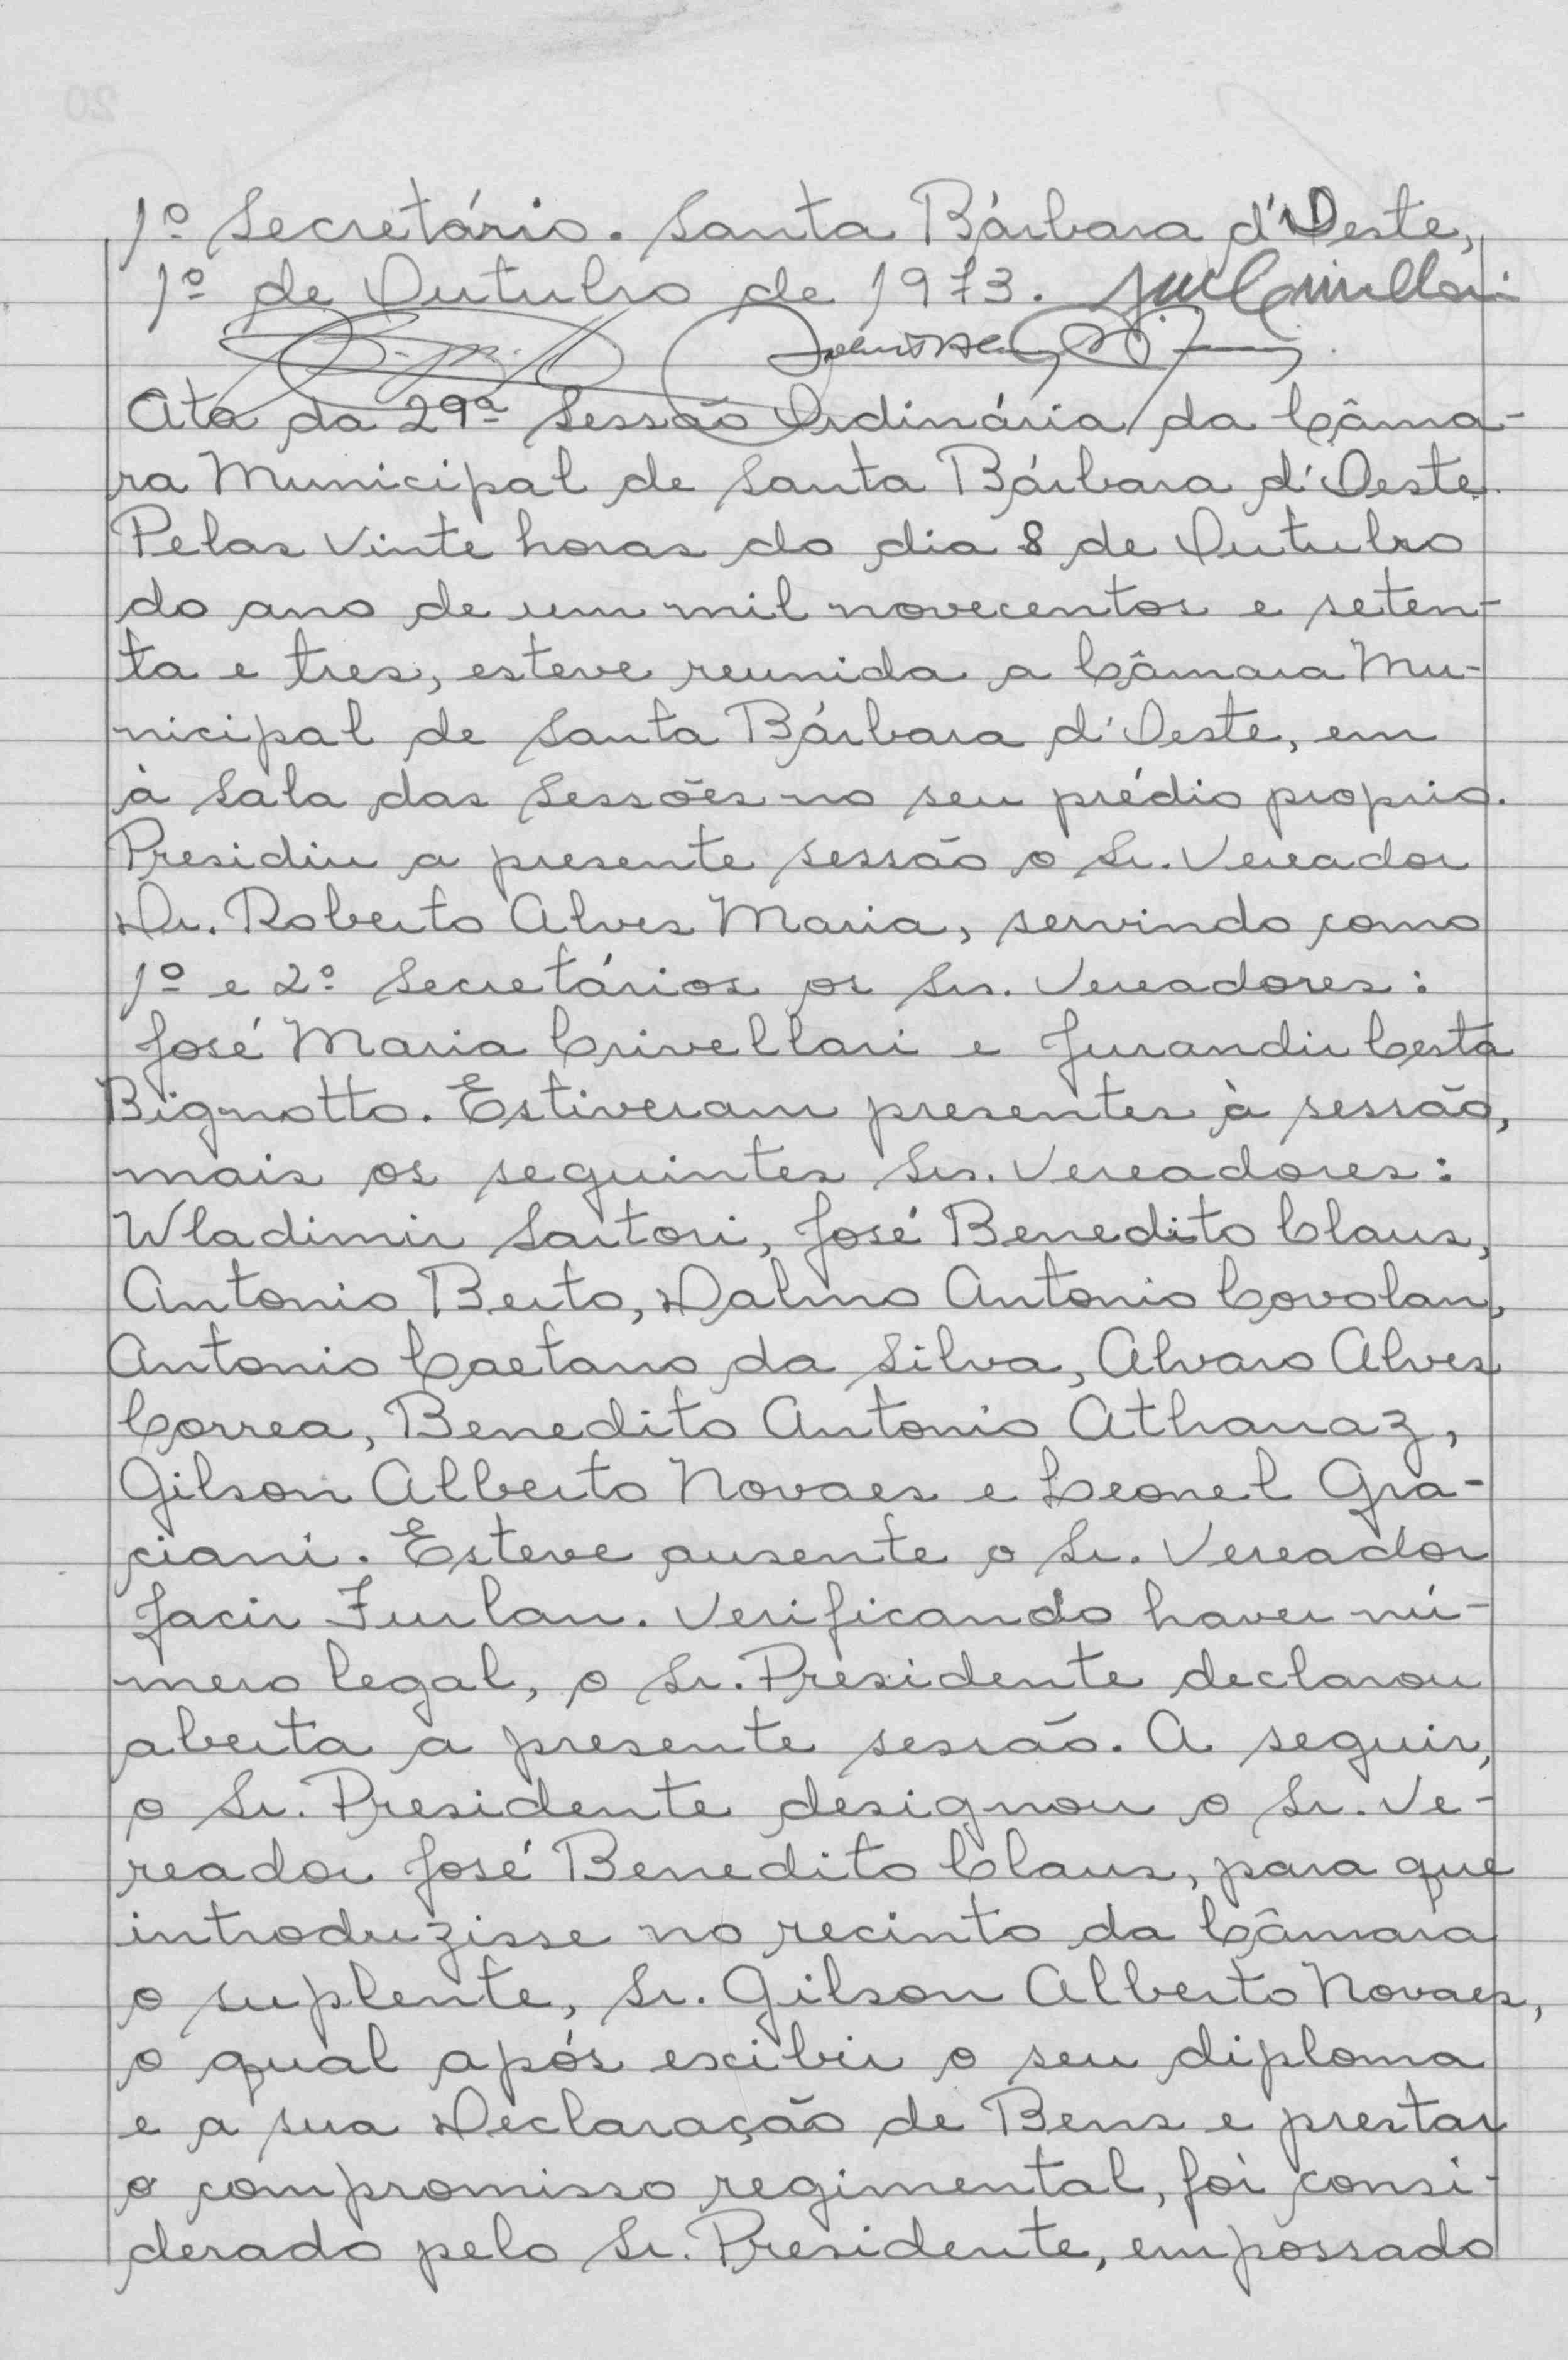 1º Secretário. Santa Bárbara d'Oeste,
1º de Outubro de 1973.
Ata da 29ª Sessão Ordinária da Câma-
ra Municipal de Santa Bárbara d'Oeste.
Pelas vinte horas do dia 8 de Outubro
do ano de um mil novecentos e seten-
ta e tres, esteve reunida a Câmara Mu-
nicipal de Santa Bárbara d'Oeste, em
à Sala das Sessões no seu prédio proprio.
Presidiu a presente sessão o Sr. Vereador
Dr. Roberto Alves Maria, servindo como
1º e 2º Secretários os Srs. Vereadores:
José Maria Crivellari e Jurandir Certa
Bignotto. Estiveram presentes à sessão,
mais os seguintes Srs. Vereadores:
Wladimir Sartori, José Benedito Claus,
Antonio Berto, Dalmo Antonio Covolan,
Antonio Caetano da Silva, Alvaro Alves
Correa, Benedito Antonio Athanaz,
Gilson Alberto Novaes e Leonel Gra-
ciani. Esteve ausente o Sr. Vereador
Jacir Furlan. Verificando haver nú-
mero legal, o Sr. Presidente declarou
aberta a presente sessão. A seguir,
o Sr. Presidente designou o Sr. Ve-
reador José Benedito Claus, para que
introduzisse no recinto da Câmara
o suplente, Sr. Gilson Alberto Novaes,
o qual após exibir o seu diploma
e a sua Declaração de Bens e prestar
o compromisso regimental, foi consi-
derado pelo Sr. Presidente, empossado